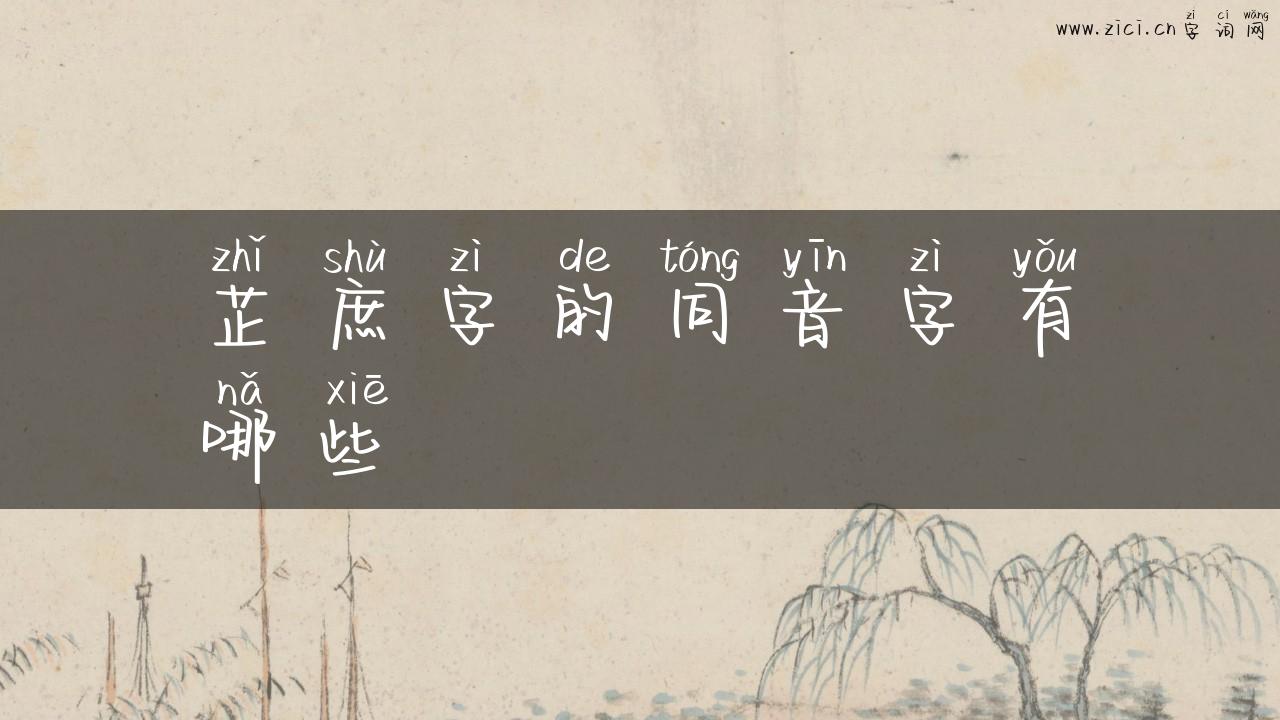 zì cí wǎng
www.zici.cn 字词网
zhǐ shù zì de tóng yīn zì yǒu
芷庶字的同音字有
nǎ xiē
哪些